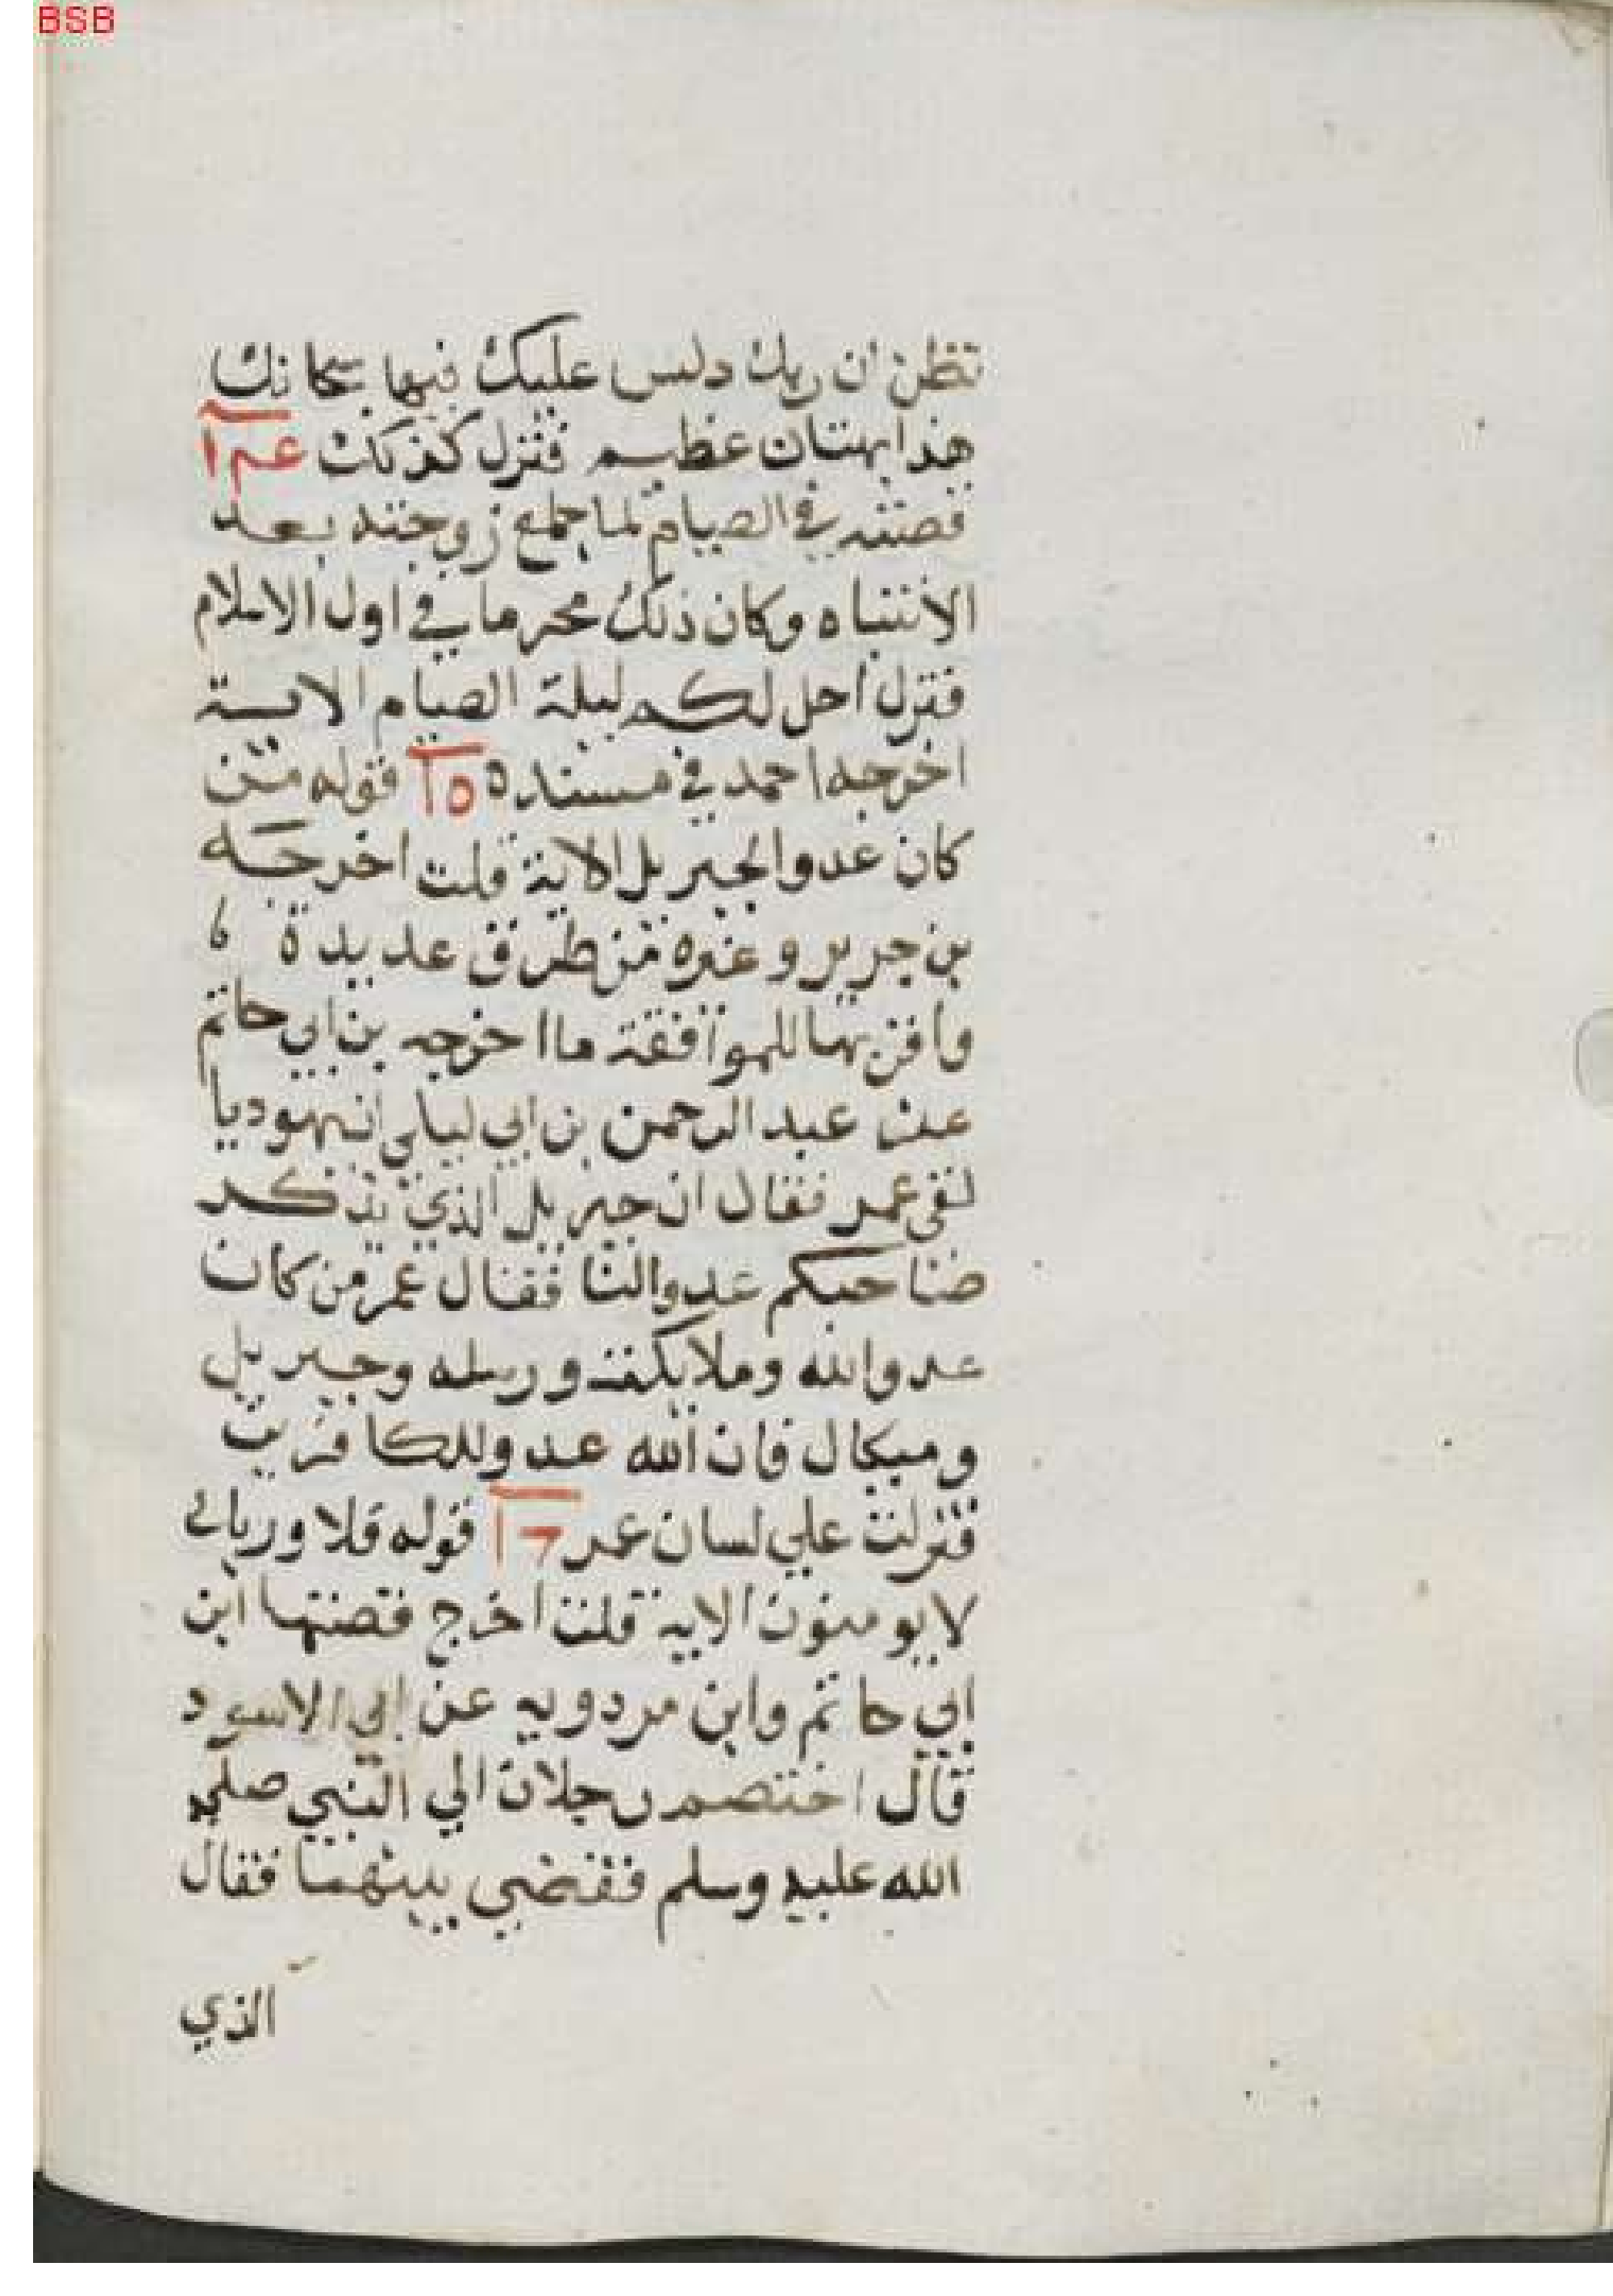 BSB
تظن ان ربك دلس عليك فيها سبحانك
هذا بهتان عظيم فنزل كذلك ١٤
قصته في الصيام لما جامع زوجته بعد
الانتباه وكان ذلك محرما في اول الاسلام
فنزل احل لكم ليلة الصيام الاية
اخرجه احمد في مسنده ١٥ قوله من
كان عدوا لجبريل الاية قلت اخرجه
بن جرير وغيره من طرق عديدة
واقربها للموافقة ما اخرجه بن ابي حاتم
عن عبد الرحمن بن ابي ليلي ان يهوديا
لقي عمر فقال ان جبريل الذي يذكر
صاحبكم عدو لنا فقال عمر من كان
عدوا لله وملايكته ورسله وجبريل
وميكال فان الله عدو للكافرين
فنزلت علي لسان عمر ١٦ قوله فلا وربك
لا يومنون الاية قلت اخرج قصتها ابن
ابي حاتم وابن مردويه عن ابي الاسود
قال اختصم رجلان الي النبي صلي
الله عليه وسلم فقضي بينهما فقال
الذي